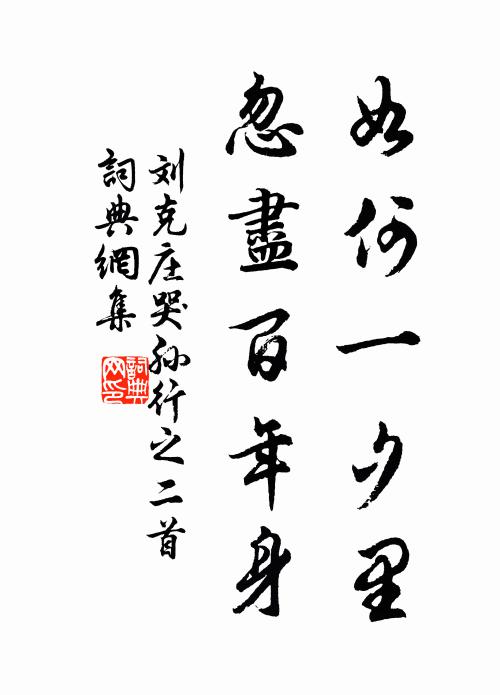 如何一夕里
忽盡百年身
刘克庄哭孙行之二首
詞典網集
詞典網印